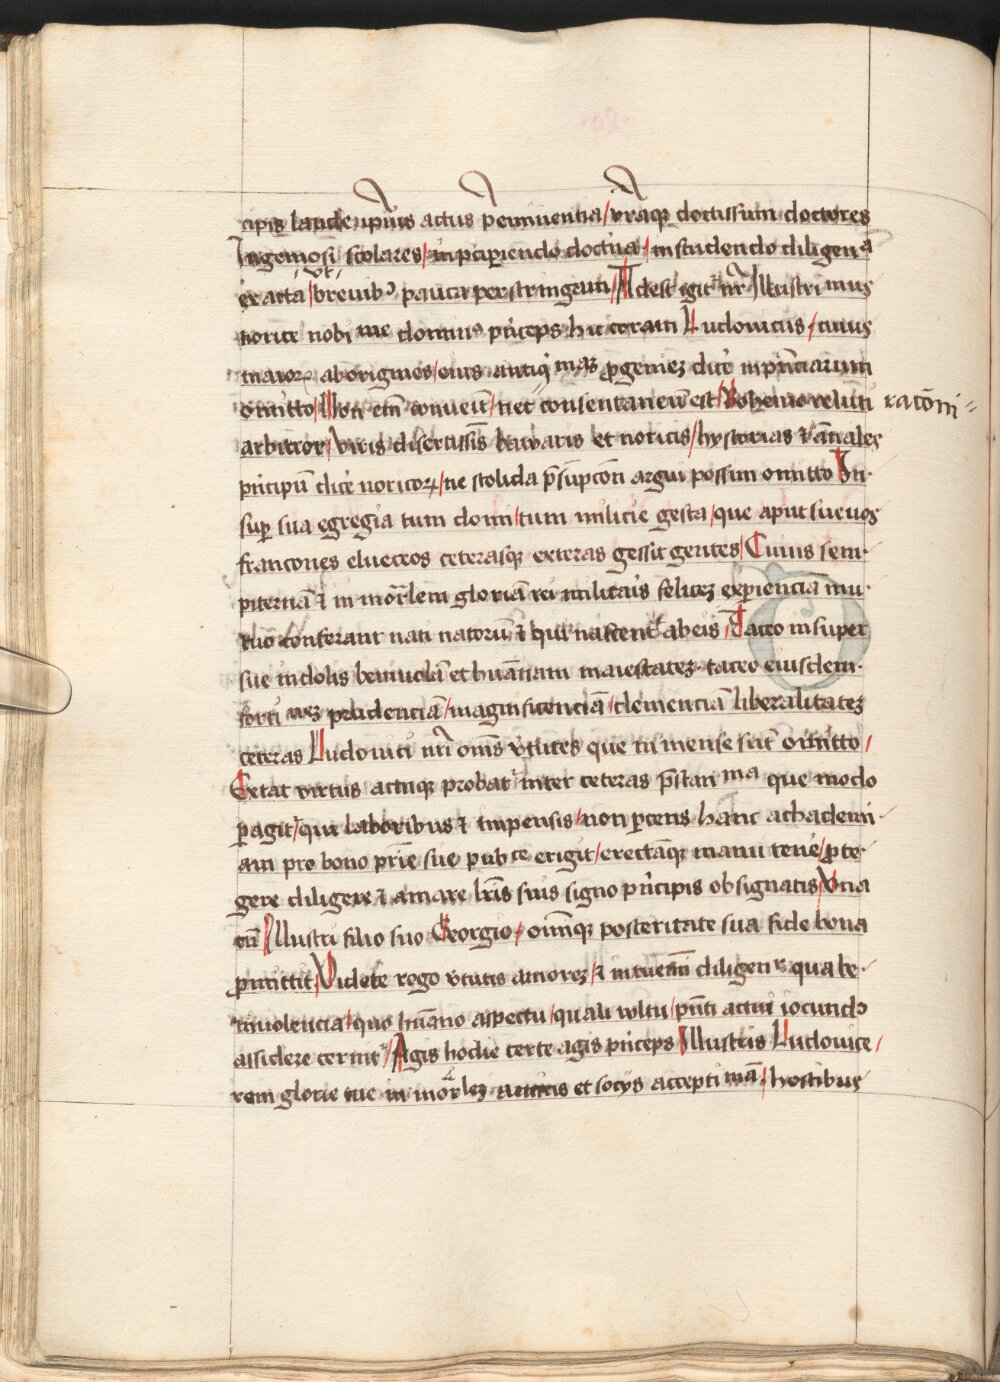 cipis laude ipsius actus preminentia / vraque doctissim doctores
Ingeniosi scolares / in pcipiendo doctrina / in studendo diligenᵃ
exacta / vt breuibꝰ pauca perstringam / Adest igitʳ nr̄ Illustrimus
norice nobimᵉ dominꝰ princeps hic coram Ludouicus / cuius
maiorꝝ aborigines / eius antiqmaꝫ ꝓgenieꝫ dicē in pn̄ciarum
omitto / Non em̄ conuenit / nec consentaneū est / Bohemo veluti racōni⸗
arbitror / viris disertissīs bawaris et noricis / hystorias ⁊ ānales
principū dicē noricoꝝ / ne stolida p̄supcōn argui possim omitto In⸗
suꝑ sua egregia tum domi / tum milicie gesta / que aput sueuos
francones elueceos ceterasque exteras gessit gentes / Cuius sem⸗
piternā ⁊ in mor̄lem gloriā rei militaris feliceꝫ exꝑienciā mu⸗
tuo conferant nati natorū ⁊ qui nascentʳ ab eis / Taceo insuper
sue indolis beniuolā et huānam maiestateꝫ taceo eiusdem⸗
fortimeꝫ prudenciā / magnificenciā / clemenciā liberalitateꝫ
ceteras Ludouici nr̄i oms v̄tutes que in mense sūt omitto /
Extat virtus actuque probatʳ inter ceteras p̄stanma que modo
ꝑagitʳ / qui laboribus ⁊ impensis / non ꝑcens hanc achademi⸗
am pro bono pr̄ie sue pubce erigit / erectāque manu tenē / ꝓte⸗
gere diligere ⁊ amare lr̄is suis signo principis obsignatis / Vna
cū Illustri filio suo Georgio / oīmque posteritate sua fide bona
ꝓmittit / Videte rogo v̄tutis amoreꝫ / ⁊ intuemī diligenʳ qua be⸗
niuolencia / quo hūano aspectu / quali wltu / pn̄ti actui iocundꝰ
assidere cernitʳ / Agis hodie certe agis princeps Illustris Ludouice /
rem glorie tue in mor̄leꝫ amicis et socijs acceptimā / hostibus